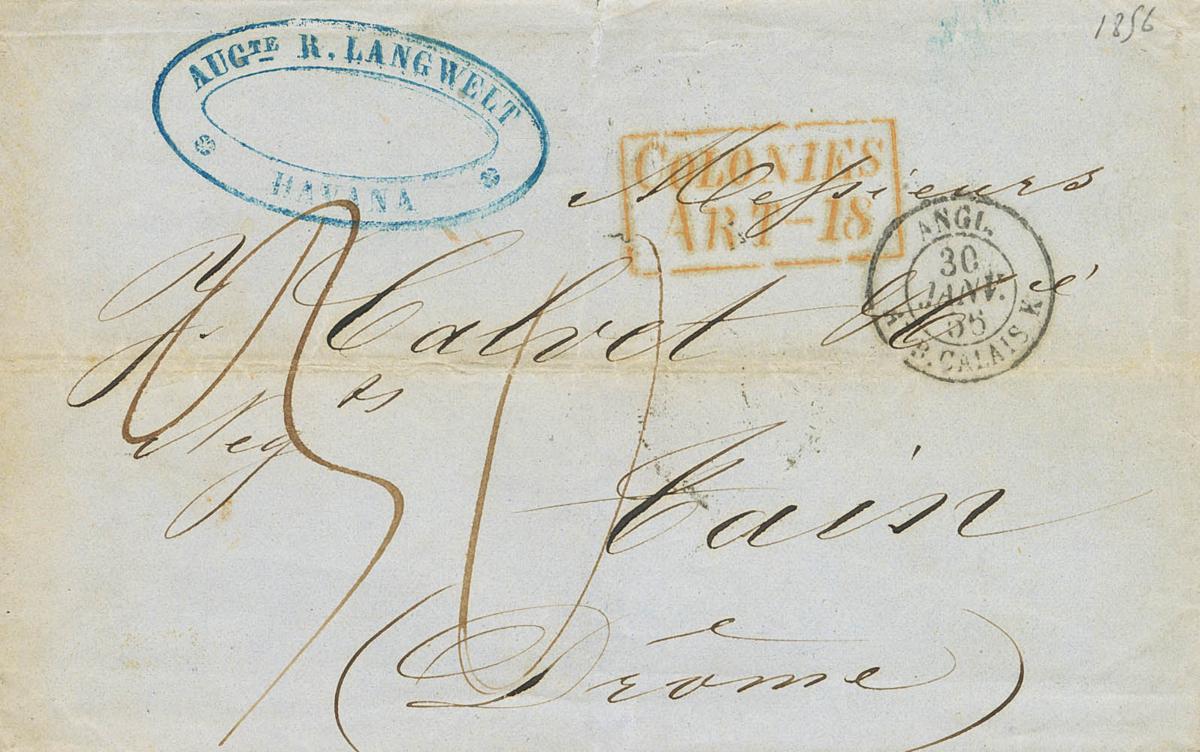 1856
AUGTE R. LANGWELT
HAVANA
COLONIES
ART-18
ANGL.
30
JANV.
56
CALAIS
Messieurs
Calvet
Neg os
Tain
(Drôme)